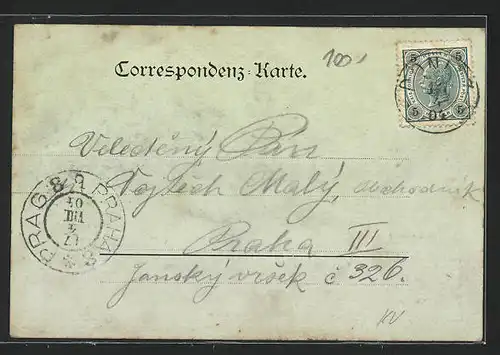 100,
Correspondenz-Karte.
5 5
5 5
Veleděčný Pan
Vojtěch Malý, obchodník
Praha III
Janský vršek č 326.
PRAG 8 PRAHA 8
VIII